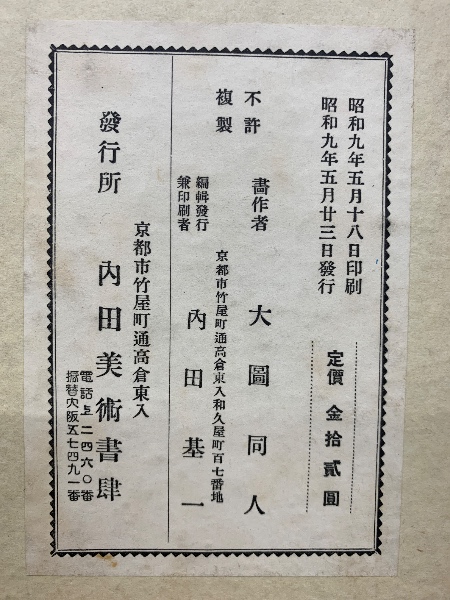 昭和九年五月十八日印刷
昭和九年五月廿三日發行
定價 金拾貳圓
不許
複製
畵作者 大圖同人
京都市竹屋町通高倉東入和久屋町百七番地
編輯發行
兼印刷者
內田基一
京都市竹屋町通高倉東入
發行所 內田美術書肆
電話上二四六〇番
振替大阪五七四九一番